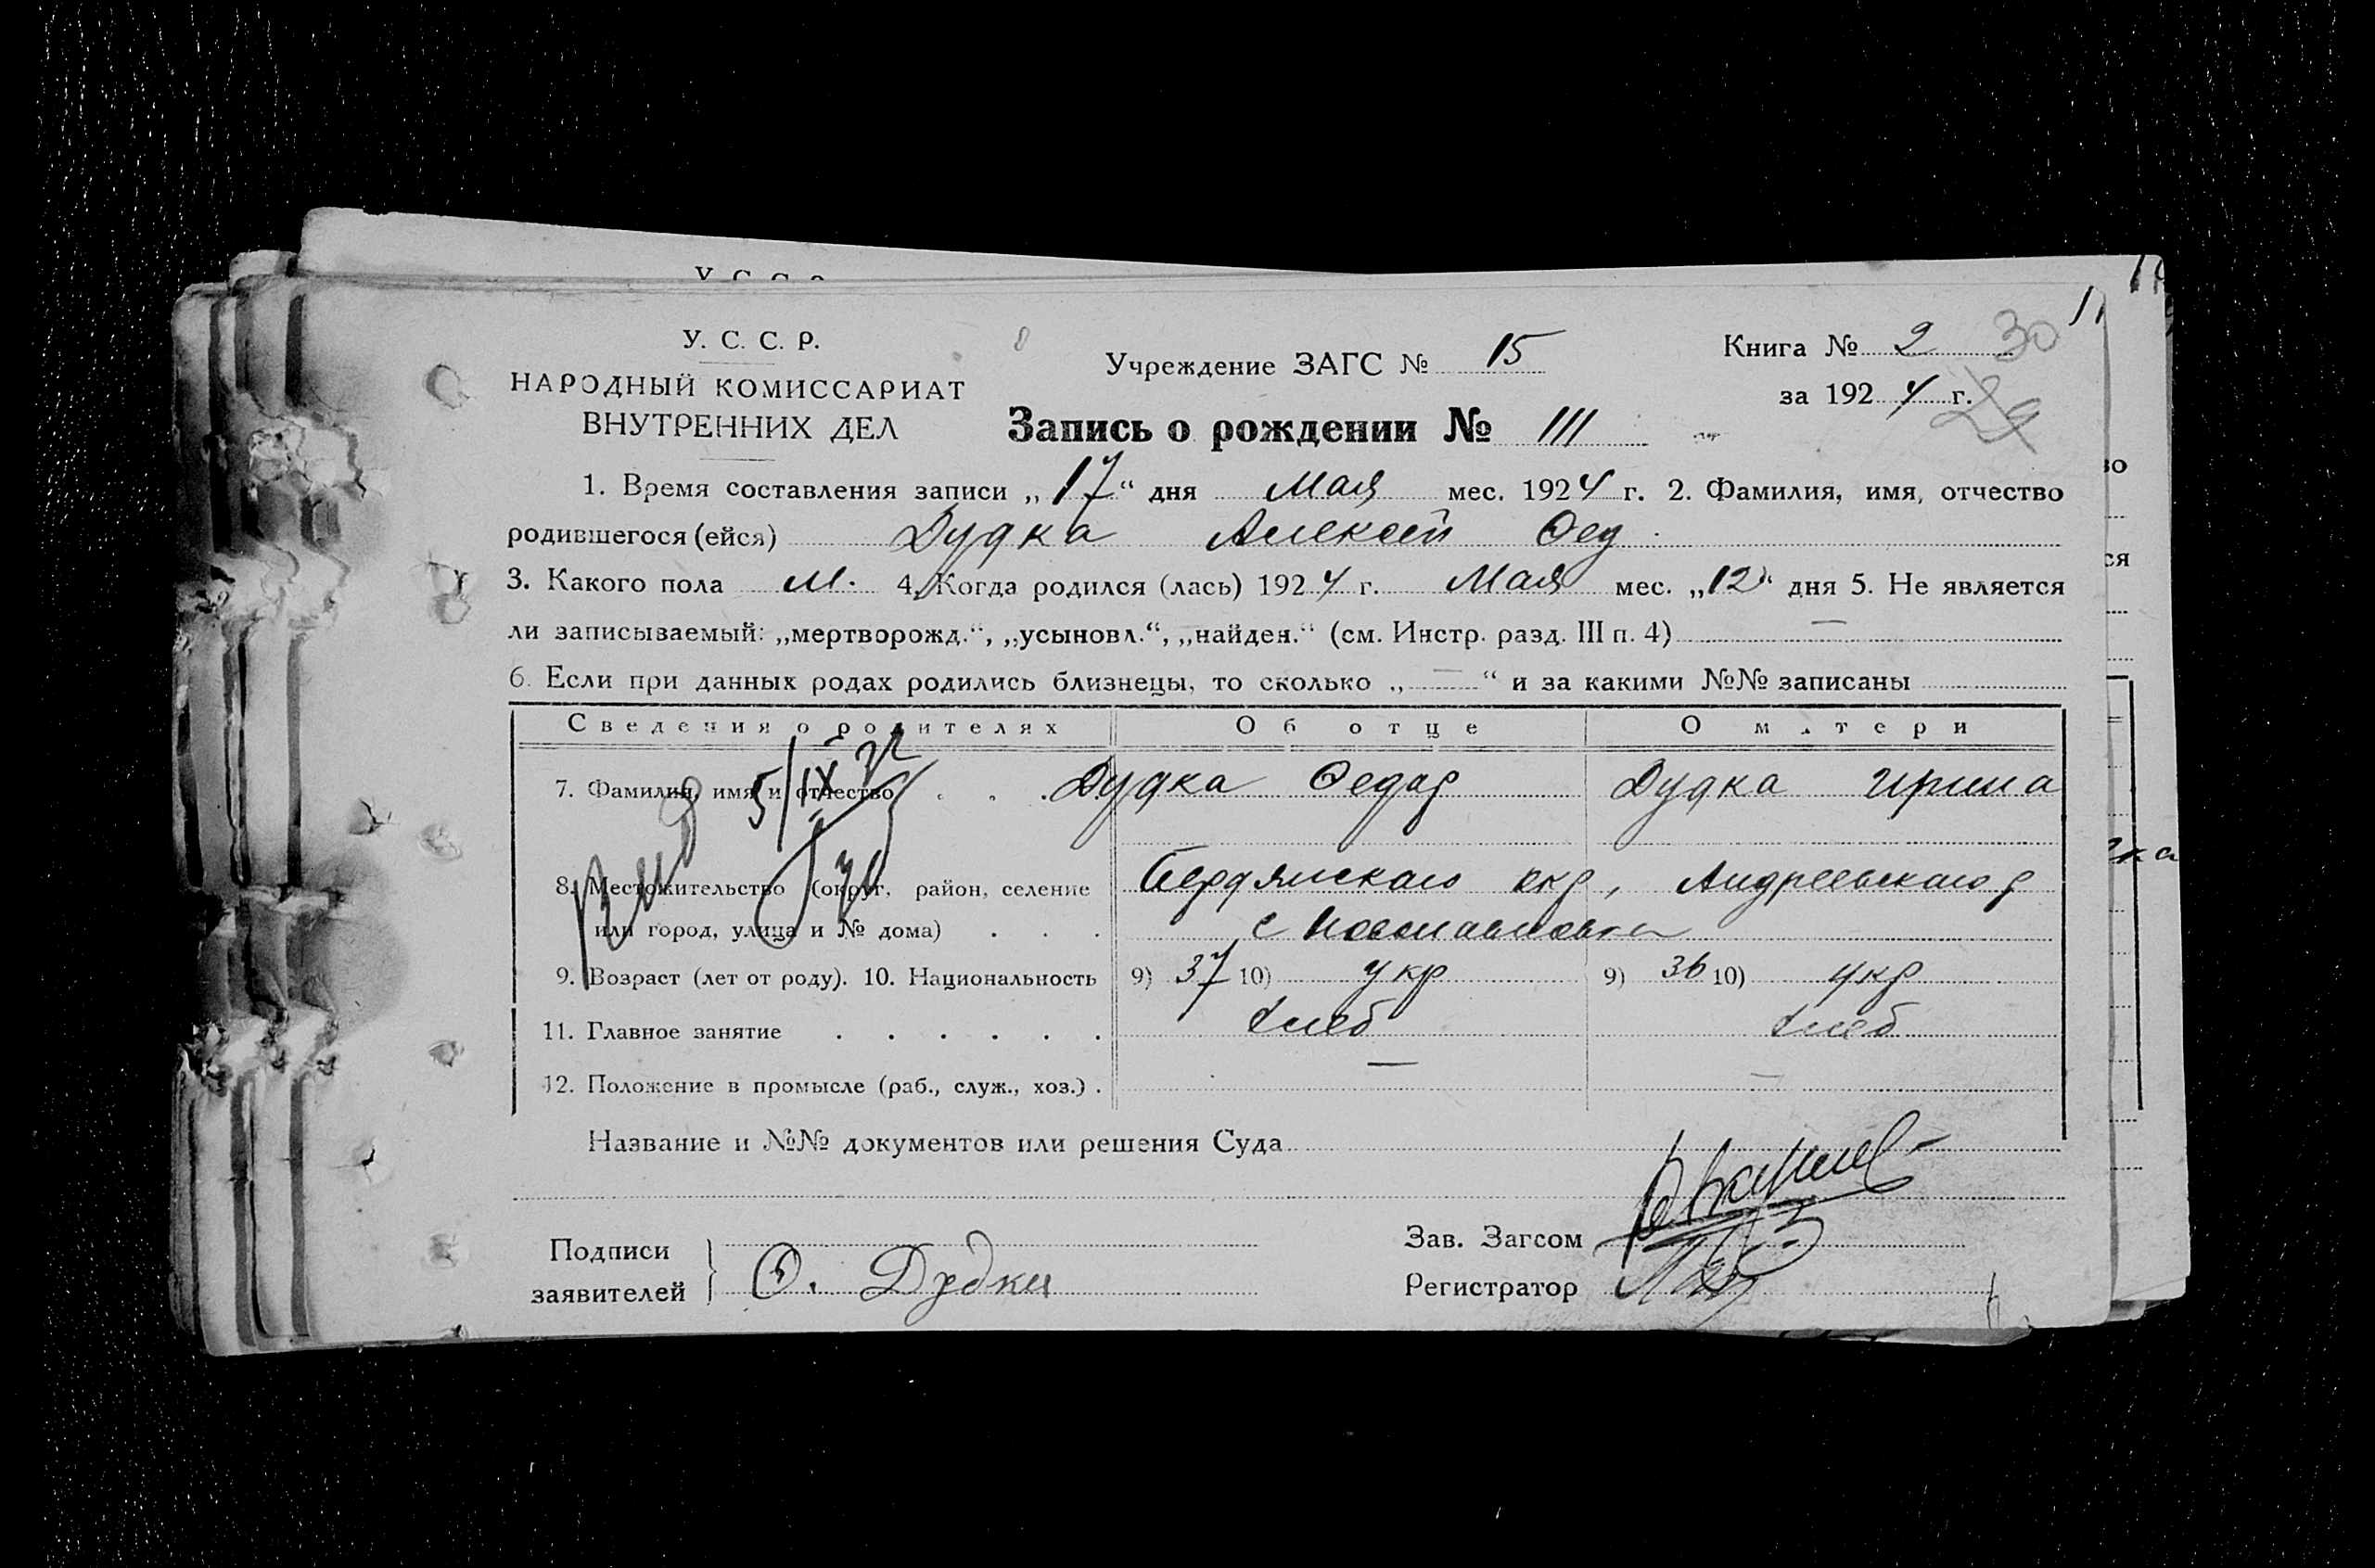 У. С. С. Р.
НАРОДНЫЙ КОМИССАРИАТ
ВНУТРЕННИХ ДЕЛ
Учреждение ЗАГС № 15
Книга № 2 30
за 1924 г. 29
Запись о рождении № 111
1. Время составления записи „17“ дня Мая мес. 1924 г. 2. Фамилия, имя, отчество
родившегося (ейся) Дудка Алексей Фед
3. Какого пола м. 4. Когда родился (лась) 1924 г. Мая мес. „12“ дня 5. Не является
ли записываемый: „мертворожд.“, „усыновл.“, „найден.“ (см. Инстр. разд. III п. 4) —
6. Если при данных родах родились близнецы, то сколько „—“ и за какими №№ записаны
Сведения о родителях Об отце О матери
7. Фамилия, имя и отчество . . . Дудка Федор Дудка Ирина
5/IX
8. Местожительство (округ, район, селение Бердянского окр, Андреевского р
или город, улица и № дома) . . . с Новопавловка
9. Возраст (лет от роду). 10. Национальность 9) 37 10) укр 9) 36 10) укр
11. Главное занятие . . . . . . хлеб хлеб
12. Положение в промысле (раб., служ., хоз.) . — —
Название и №№ документов или решения Суда
Подписи
заявителей Ф. Дудка
Зав. Загсом
Регистратор